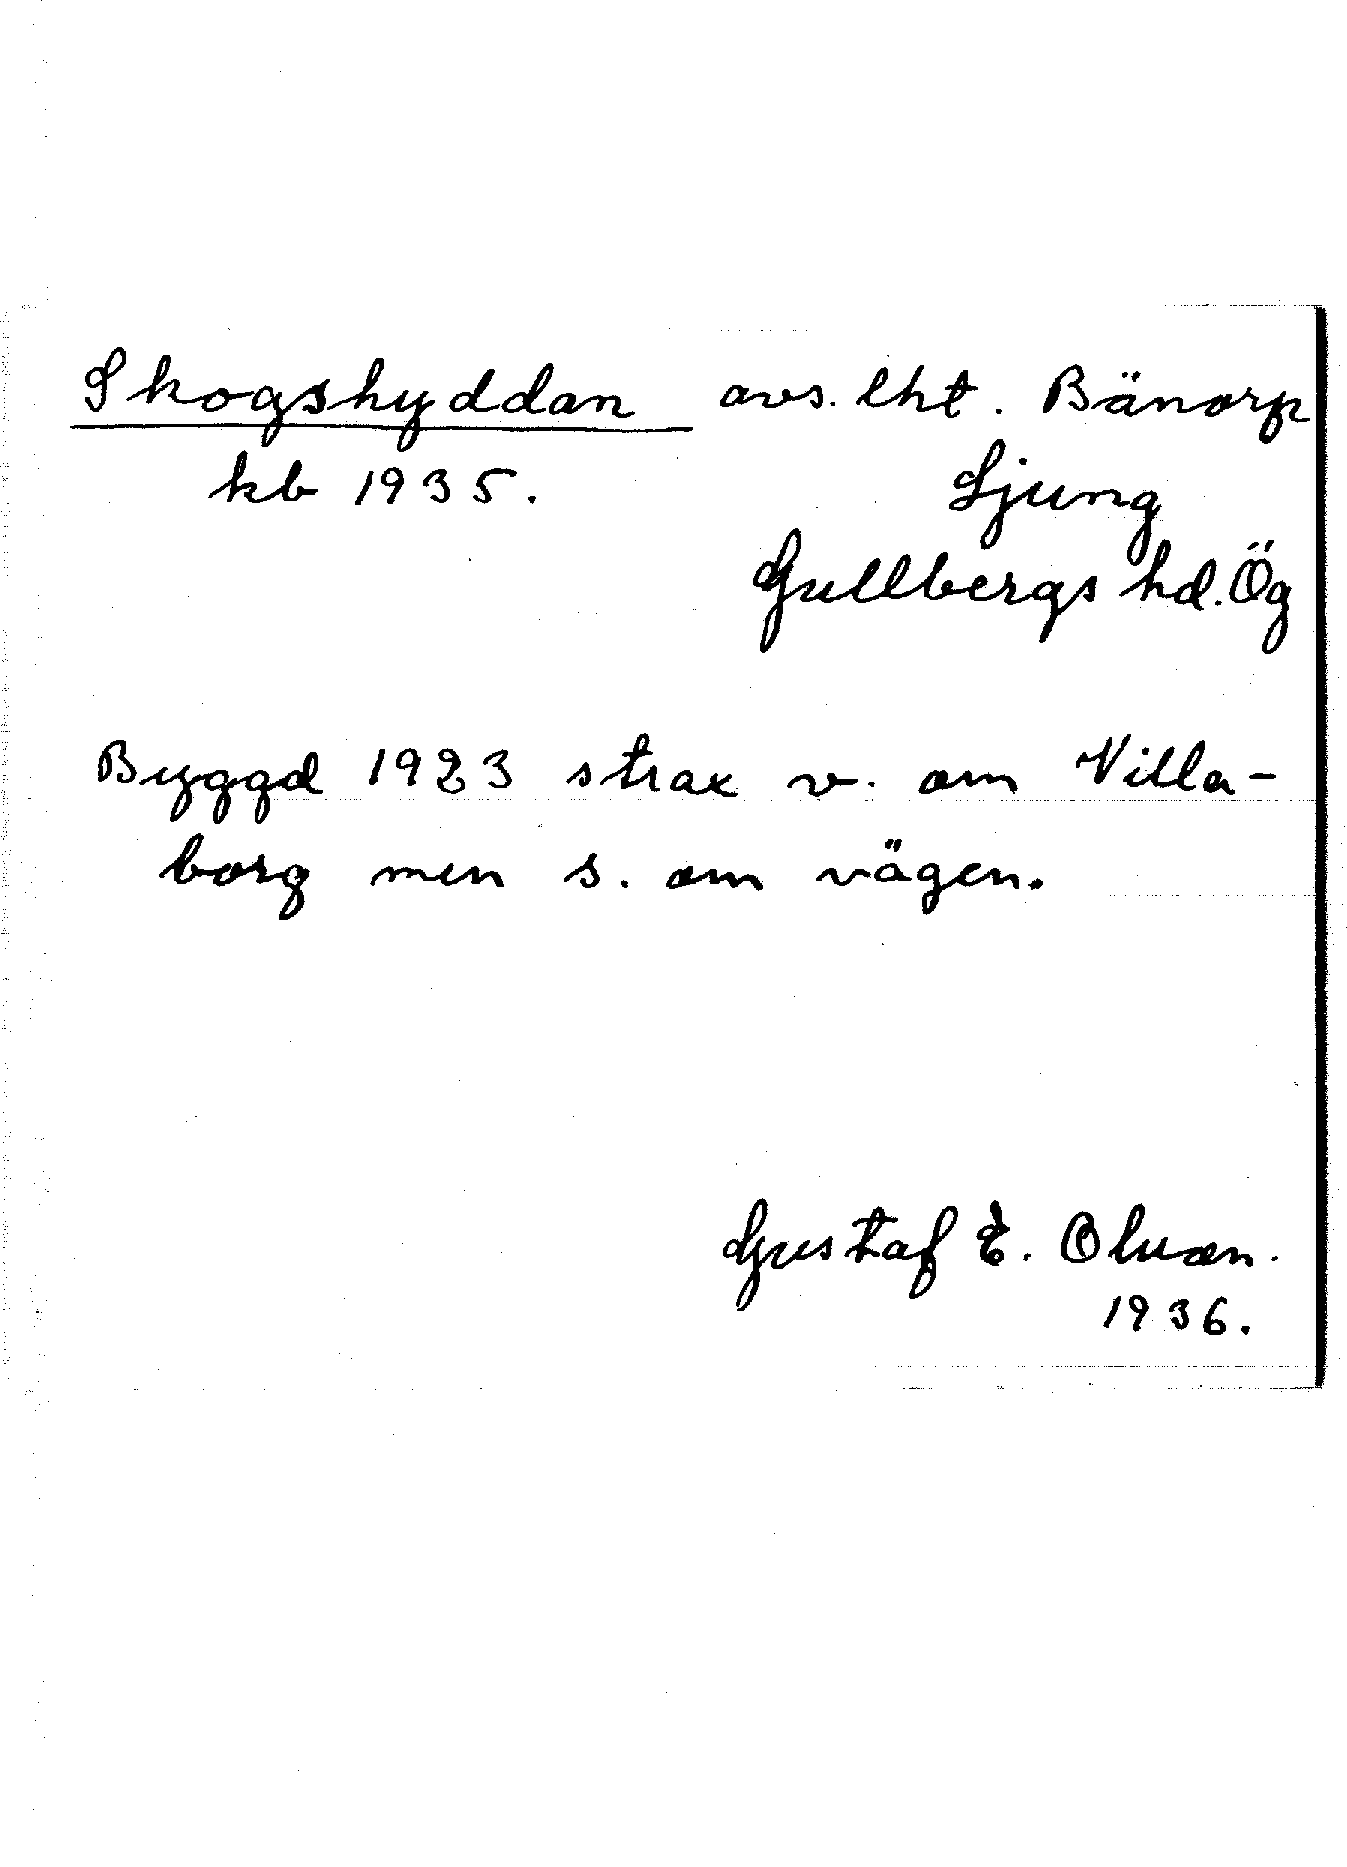 Skogshyddan avs. lht. Bänorp
kb 1935. Ljung
Gullbergs hd. Ög
Byggd 1923 strax v. om Villa-
borg men s. om vägen.
Gustaf E. Olsson.
1936.